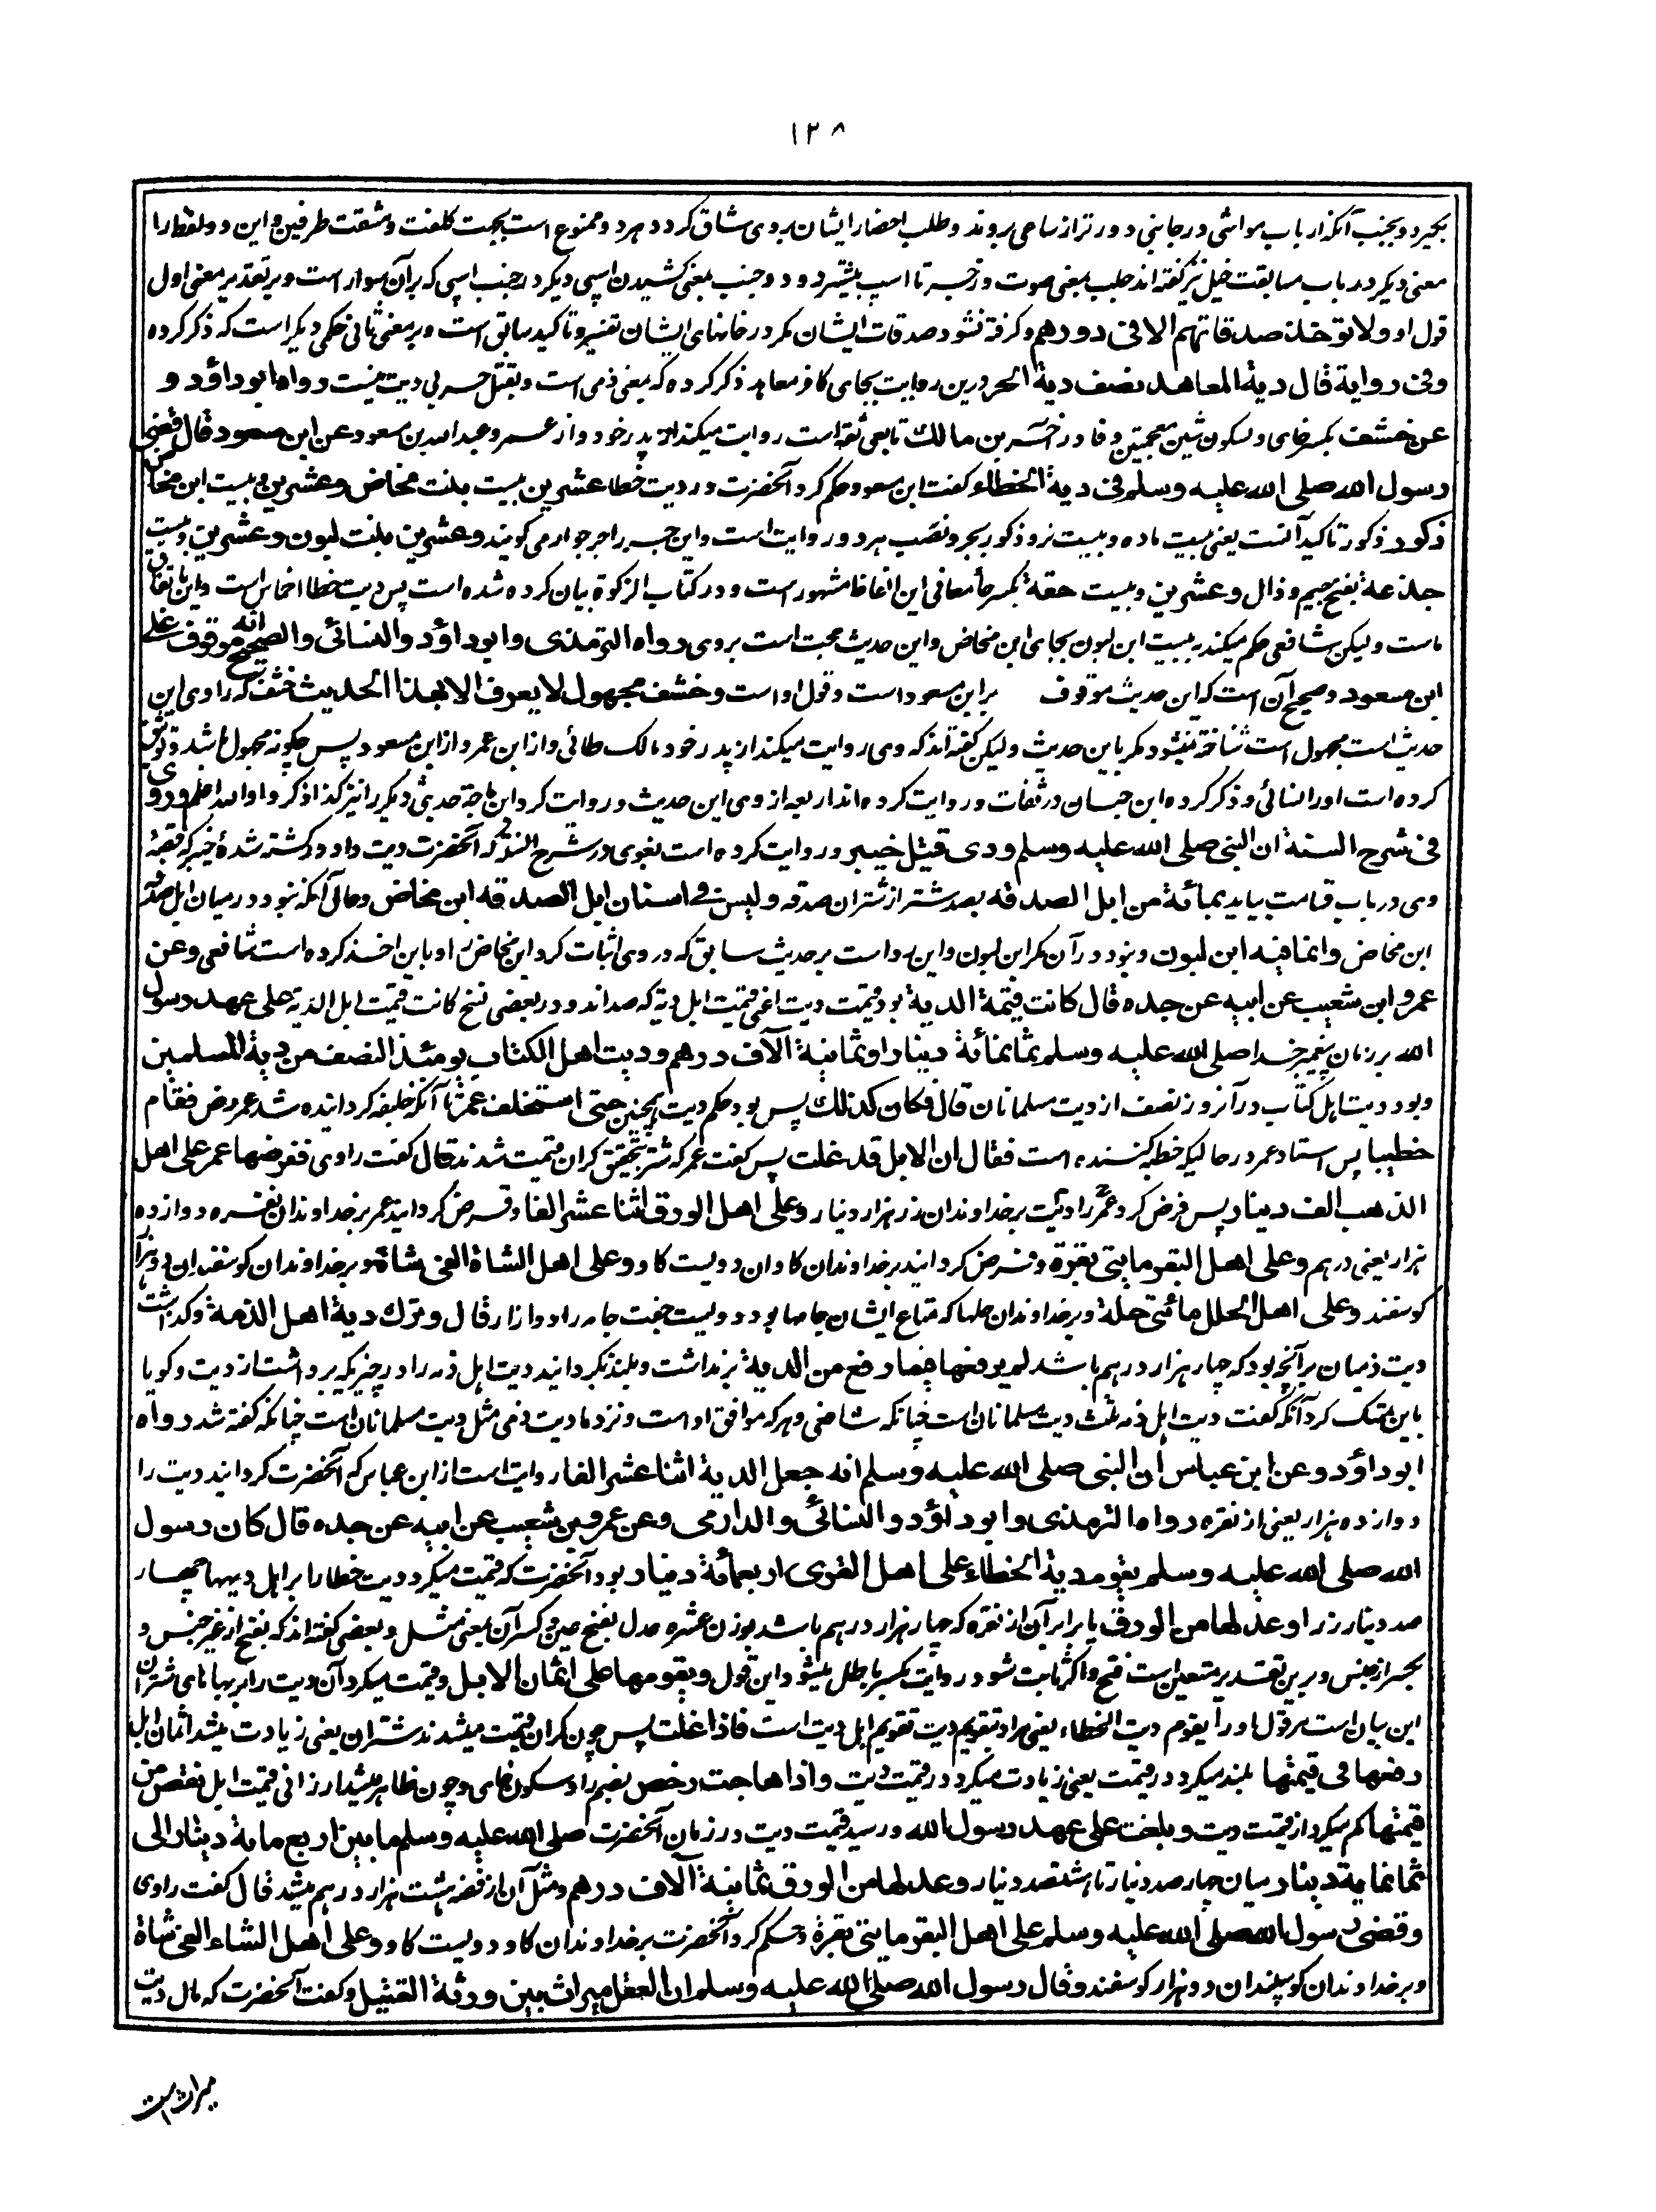 ۱۲۸
بگیرد و بجنب آنکه ارباب مواشی در جانبی دور تر از ساعی بروند و طلب احضار ایشان بر وی شاق گردد هر دو ممنوع است بجهت کلفت و مشقت طرفین و این دو لفظ را
معنی دیگر در باب مسابقت خیل نیز گفته اند جلب بمعنی صوت و زجر تا اسپ بیشتر دود و جنب بمعنی کشیدن اسپی دیگر در جنب اسپی که بر آن سوار است و بر تقدیر معنی اول
قول او ولا تؤخذ صدقاتهم الا فی دورهم و گرفته نشود صدقات ایشان مگر در خانهای ایشان تفسیر و تاکید سابق است و بر معنی ثانی حکمی دیگر است که ذکر کرده
وفی روایة قال دیة المعاهد نصف دیة الحر درین روایت بجای کافر معاهد ذکر کرده که بمعنی ذمی است و بقتل حربی دیت نیست رواه ابو داؤد و
عن خشف بکسر خای و سکون شین معجمتین و فا در آخر بن مالک تابعی ثقه است روایت میکند از پدر خود و از عمر و عبدالله بن مسعود عن ابن مسعود قال قضی
رسول الله صلی الله علیه وسلم فی دیة الخطاء گفت ابن مسعود حکم کرد آنحضرت در دیت خطا عشرین بیست بنت مخاض وعشرین و بیست ابن مخاض
ذکور ذکور تاکید آنست یعنی بیست ماده و بیست نر و ذکور بجر و نصب هر دو روایت است و این جر را جر جوار می گویند وعشرین بنت لبون وعشرین و بیست
جذعة بفتح جیم و ذال وعشرین و بیست حقة بکسر حا معانی این الفاظ مشهور است و در کتاب الزکوة بیان کرده شده است پس دیت خطا اخماس است و این باتفاق
ماست و لیکن شافعی حکم میکند به بیست ابن لبون بجای ابن مخاض و این حدیث حجت است بر وی رواه الترمذی وابو داؤد والنسائی والصحیح انه موقوف علی
ابن مسعود و صحیح آن است که این حدیث موقوف بر ابن مسعود است و قول او است وخشف مجهول لا یعرف الا بهذا الحدیث خشف که راوی این
حدیث است مجهول است شناخته نمیشود مگر باین حدیث و لیکن گفته اند که وی روایت میکند از پدر خود مالک طائی و از ابن عمر و از ابن مسعود پس چگونه مجهول باشد و توثیق
کرده است اورا نسائی و ذکر کرده ابن حبان در ثقات و روایت کرده اند اربعه از وی این حدیث و روایت کرد ابن ماجة حدیثی دیگر را نیز کذا ذکروا والله اعلم وروی
فی شرح السنة ان النبی صلی الله علیه وسلم ودی قتیل خیبر و روایت کرده است بغوی در شرح السنة که آنحضرت دیت داد کشته شدهٔ خیبر که قصهٔ
وی در باب قسامت بیاید بمائة من ابل الصدقة بصد شتر از شتران صدقه ولیس فی اسنان ابل الصدقة ابن مخاض و حال آنکه نبود در میان ابل صدقه
ابن مخاض وانما فیه ابن لبون و نبود در آن مگر ابن لبون و این رد است بر حدیث سابق که در وی اثبات کرد ابن مخاض را و باین اخذ کرده است شافعی وعن
عمرو ابن شعیب عن ابیه عن جده قال کانت قیمة الدیة بود قیمت دیت اعنی قیمت ابل دیه که صد اند و در بعضی نسخ کانت قیمت ابل الدیة علی عهد رسول
الله بر زمان پیغمبر خدا صلی الله علیه وسلم ثمانمائة دینار او ثمانیة الآف درهم ودیت اهل الکتاب یومئذ النصف من دیة المسلمین
و بود دیت اهل کتاب در آنروز نصف از دیت مسلمانان قال فکان کذلک پس بود حکم دیت همچنین حتی استخلف عمر تا آنکه خلیفه گردانیده شد عمر رض فقام
خطیبا پس استاد عمر در حالیکه خطبه کننده است فقال ان الابل قد غلت پس گفت عمر که شتر بتحقیق گران قیمت شدند قال گفت راوی ففرضها عمر علی اهل
الذهب الف دینار پس فرض کرد عمر دیت را بر خداوندان زر هزار دینار وعلی اهل الورق اثنا عشر الفا و فرض گردانید عمر بر خداوندان نقره دوازده
هزار یعنی درهم وعلی اهل البقر مایتی بقرة و فرض گردانید بر خداوندان گاوان دویست گاو وعلی اهل الشاة الفی شاة و بر خداوندان گوسفندان دو هزار
گوسفند وعلی اهل الحلل مائتی حلة و بر خداوندان حلها که متاع ایشان جامها بود دویست جفت جامه ردا و ازار قال وترک دیة اهل الذمة و گذاشت
دیت ذمیان بر آنچه بود که چهار هزار درهم باشد لم یرفعها فیما رفع من الدیة بر نداشت و بلند نگردانید دیت اهل ذمه را در چیزیکه برداشت از دیت و گویا
باین تمسک کرد آنکه گفت دیت اهل ذمه ثلث دیت مسلمانان است چنانکه شافعی و هر که موافق او است و نزد ما دیت ذمی مثل دیت مسلمانان است چنانکه گفته شد رواه
ابو داؤد وعن ابن عباس ان النبی صلی الله علیه وسلم انه جعل الدیة اثنا عشر الفا روایت است از ابن عباس که آنحضرت گردانید دیت را
دوازده هزار یعنی از نقره رواه الترمذی وابو داؤد والنسائی والدارمی وعن عمرو بن شعیب عن ابیه عن جده قال کان رسول
الله صلی الله علیه وسلم یقوم دیة الخطاء علی اهل القری اربعمائة دینار بود آنحضرت که قیمت میکرد دیت خطا را بر اهل دیهها چهار
صد دینار زر او عدلها من الورق یا برابر آن از نقره که چهار هزار درهم باشد بوزن عشره عدل بفتح عین و کسر آن بمعنی مثل و بعضی گفته اند که بفتح از غیر جنس و
بکسر از جنس و برین تقدیر متعین است فتح و اگر ثابت شود روایت بکسر باطل میشود این قول ویقومها علی اثمان الابل و قیمت میکرد آن دیت را بر بهای شتران
این بیان است مر قول او را یقوم دیت الخطاء یعنی مراد بتقویم دیت تقویم ابل دیت است فاذا غلت پس چون گران قیمت میشدند شتران یعنی زیادت میشد اثمان ابل
رفعها فی قیمتها بلند میکرد در قیمت یعنی زیادت میکرد در قیمت دیت واذا هاجت رخص بضم را و سکون خای و چون ظاهر میشد ارزانی قیمت ابل نقص من
قیمتها کم میکرد از قیمت دیت وبلغت علی عهد رسول الله و رسید قیمت دیت در زمان آنحضرت صلی الله علیه وسلم ما بین اربع مایة دینار الی
ثمانمایة دینار میان چهار صد دینار تا هشتصد دینار وعدلها من الورق ثمانیة آلاف درهم و مثل آن از فضه هشت هزار درهم میشد قال گفت راوی
وقضی رسول الله صلی الله علیه وسلم علی اهل البقر مایتی بقرة و حکم کرد آنحضرت بر خداوندان گاو دویست گاو وعلی اهل الشاء الفی شاة
و بر خداوندان گوسپندان دو هزار گوسفند وقال رسول الله صلی الله علیه وسلم ان العقل میراث بین ورثة القتیل و گفت آنحضرت که مال دیت
میراث است